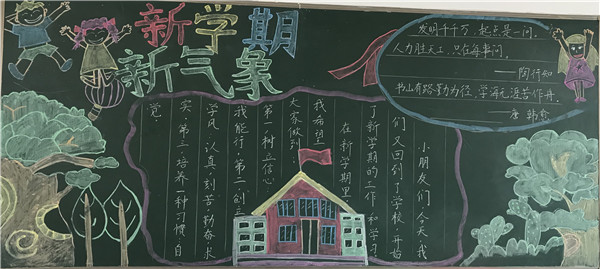 新学期
新气象
发明千千万，起点是一问。
人力胜天工，只在每事问。
——陶行知
书山有路勤为径，学海无涯苦作舟。
——唐 韩愈
小朋友们，今天，我
们又回到了学校，开始
了新学期的工作和学习
在新学期里
我希望
大家做到：
第一树立信心，
我能行，第二，创立
学风，认真，刻苦勤奋，求
实，第三，培养一种习惯，自
觉。